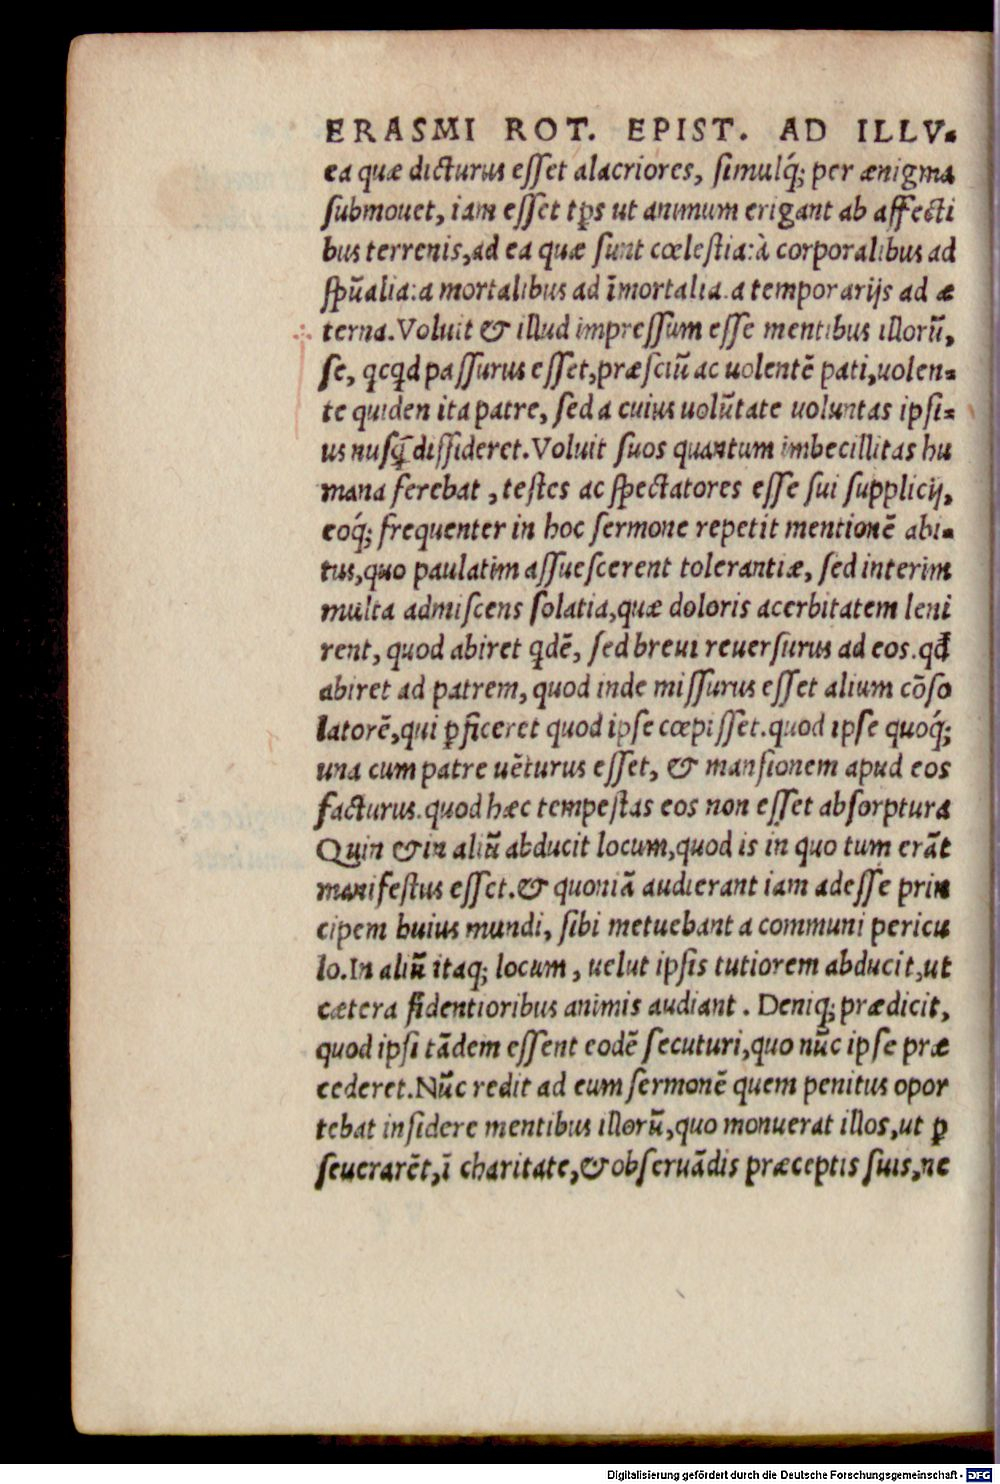 ERASMI ROT. EPIST. AD ILLV.
ea quæ dicturus esset alacriores, simulq́; per ænigma
submouet, iam esset tp̄s ut animum erigant ab affecti
bus terrenis, ad ea quæ sunt cœlestia: à corporalibus ad
sp̄ualia: a mortalibus ad īmortalia. a temporarijs ad æ
terna. Voluit & illud impressum esse mentibus illorū,
se, qcqd passurus esset, præsciū ac uolentē pati, uolen-
te quiden ita patre, sed a cuius uolūtate uoluntas ipsi-
us nusq̄ dissideret. Voluit suos quantum imbecillitas hu
mana ferebat, testes ac spectatores esse sui supplicij,
eoq́; frequenter in hoc sermone repetit mentionē abi-
tus, quo paulatim assuescerent tolerantiæ, sed interim
multa admiscens solatia, quæ doloris acerbitatem leni
rent, quod abiret qdē, sed breui reuersurus ad eos. qđ
abiret ad patrem, quod inde missurus esset alium cōso
latorē, qui ꝑficeret quod ipse cœpisset. quod ipse quoq́;
una cum patre uēturus esset, & mansionem apud eos
facturus. quod hæc tempestas eos non esset absorptura
Quin & in aliū abducit locum, quod is in quo tum erāt
manifestus esset. & quoniā audierant iam adesse prin
cipem huius mundi, sibi metuebant a communi pericu
lo. In aliū itaq; locum, uelut ipsis tutiorem abducit, ut
cætera fidentioribus animis audiant. Deniq; prædicit,
quod ipsi tādem essent eodē secuturi, quo nūc ipse præ
cederet. Nūc redit ad eum sermonē quem penitus opor
tebat insidere mentibus illorū, quo monuerat illos, ut ꝑ
seuerarēt, ī charitate, & obseruādis præceptis suis, ne
Digitalisierung gefördert durch die Deutsche Forschungsgemeinschaft - DFG